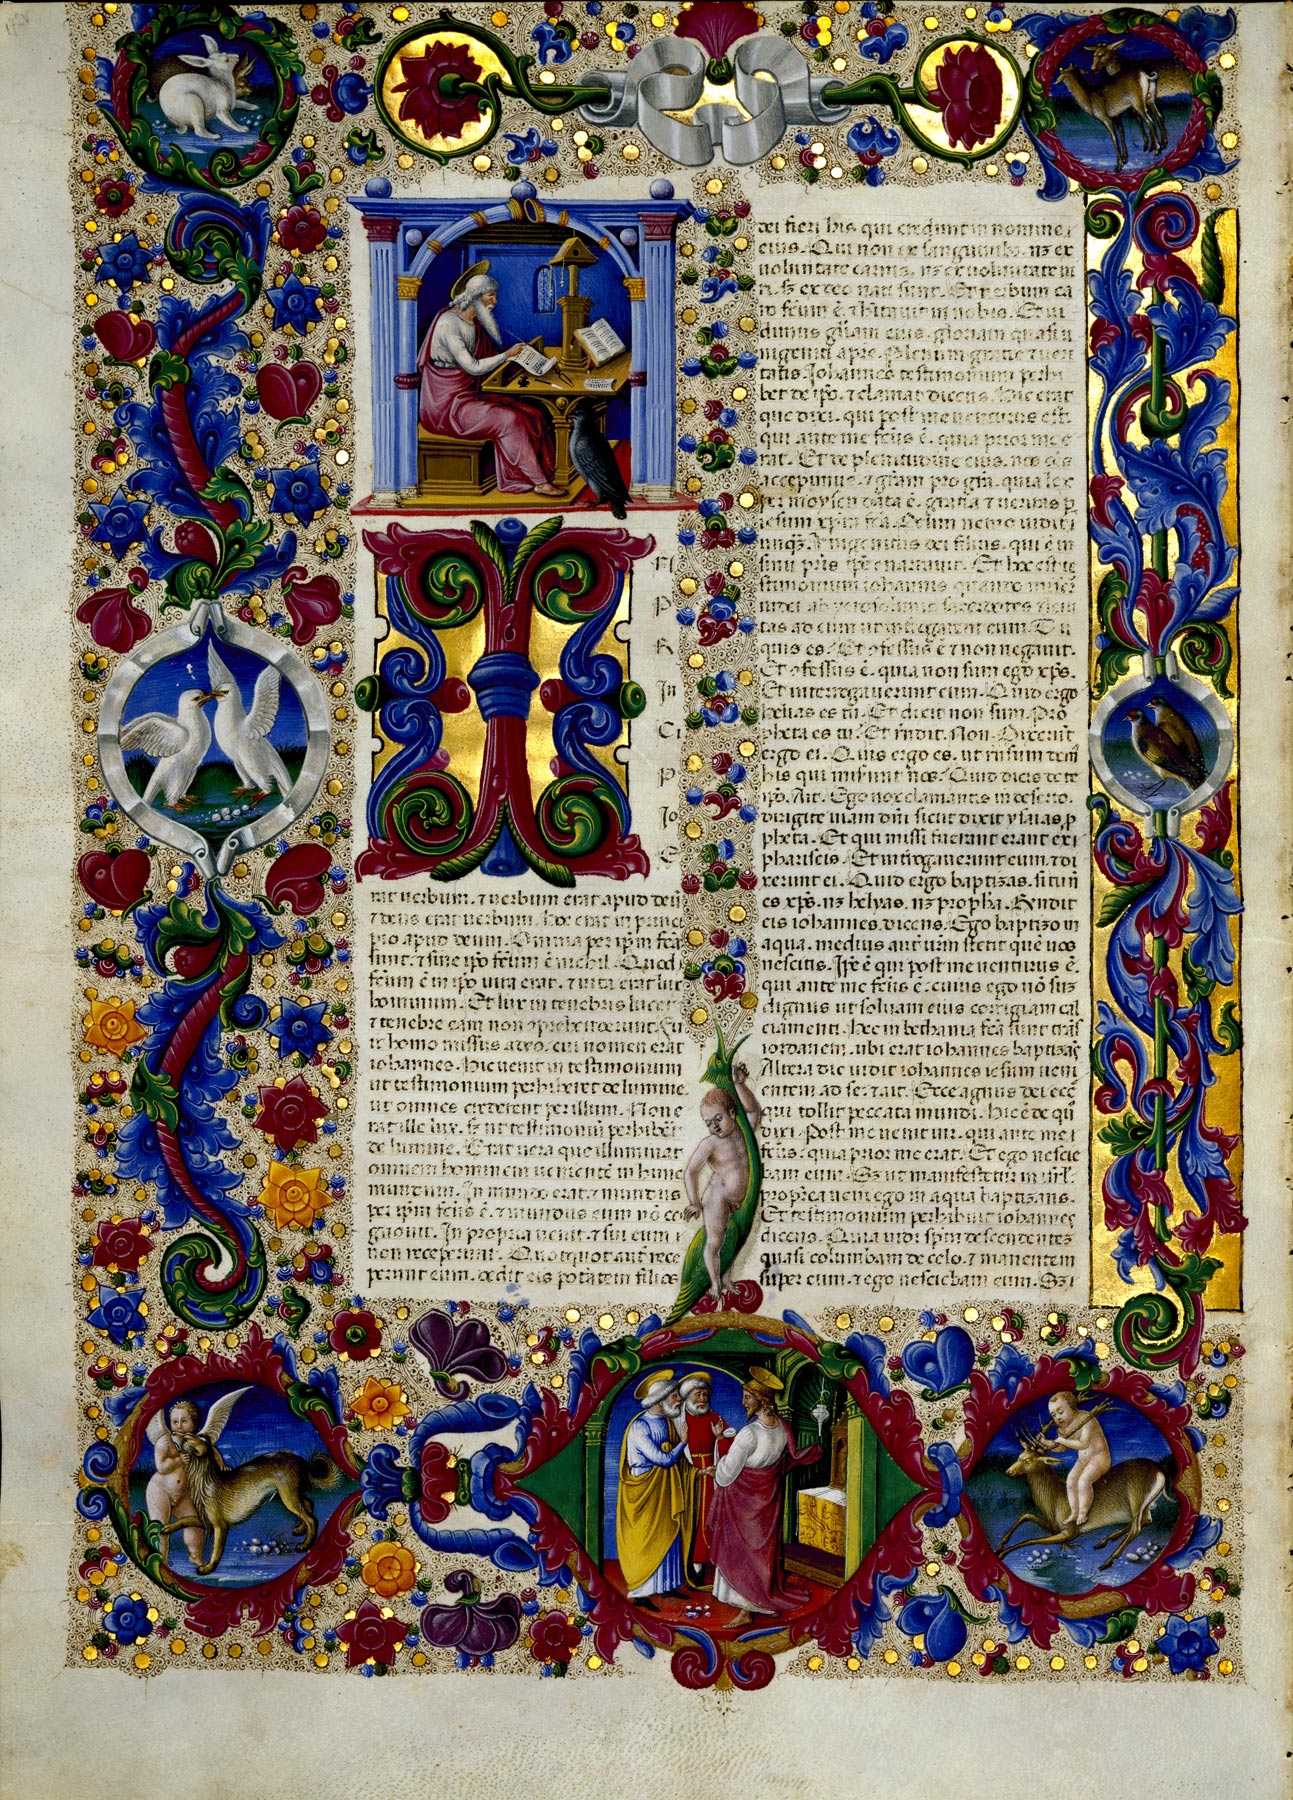 I
N
P
R
In
Ci
P
Io
E
rat uerbum. & uerbum erat apud deū
& deus erat uerbum. Hoc erat in princi
pio apud deum. Omnia per ip̄m fca
sunt. & sine ip̄o fc̄um ē nichil. Quod
fc̄um ē in ip̄o uita erat. & uita erat lux
hominum. Et lux in tenebris lucet
& tenebre eam non ꝯprehenderunt. Fu
it homo missus a deo. cui nomen erat
iohannes. Hic uenit in testimonium
ut testimonium perhiberet de lumine
ut omnes crederent per illum. Non e
rat ille lux. sz ut testimoniū perhiber̄
de lumine. Erat uera que illuminat
omnem hominem uenientē in hunc
mundum. In mundo erat. & mundus
per ip̄m fc̄us ē. & mundus eum nō co
gnouit. In propria uenit. & sui eum
non receperunt. Quotquot aut̄ rece
perunt eum. dedit eis potatem filios
dei fieri his qui credunt in nomine
eius. Qui non ex sanguinibz. nz ex
uoluntate carnis. nz ex uoluntate ui
ri. sz ex deo nati sunt. Et uerbum ca
ro fc̄um ē. & habitauit in nobis. Et ui
dimus gl̄iam eius. gloriam quasi u
nigeniti a pr̄e. Plenum gratie & ueri
tatis. Iohannes testimonium perhi
bet de ip̄o. & clamat dicens. Hic erat
que dixi. qui post me uenturus est.
qui ante me fc̄us ē. quia prior me e
rat. Et de plenitudine eius. nos oēs
accepimus. & gr̄am pro gr̄a. quia lex
per moysen data ē. gratia & ueritas p
iesum xp̄m fc̄a. Deum nemo uidit
unqz. Vnigenitus dei filius. qui ē in
sinu pr̄is ip̄e enarrauit. Et hoc est te
stimonium iohannis quando miser̄
iudei ab yerosolimis sacerdotes &
tas ad eum ut int̄rogarent eum. Tu
quis es. Et ꝯfessus ē & non negauit.
Et ꝯfessus ē. quia non sum ego xp̄s.
Et interrogauerunt eum. Quid ergo
helias es tu. Et dicit non sum. Pro
pheta es tu. Et rn̄dit. Non. Dixerūt
ergo ei. Quis ergo es. ut rn̄sum dem̄
his qui miserunt nos. Quid dicis de te
ip̄o. Ait. Ego uox clamantis in deserto.
dirigite uiam dn̄i sicut dixit ysaias p
pheta. Et qui missi fuerant erant ex
phariseis. Et int̄rogauerunt eum. & di
xerunt ei. Quid ergo baptizas. si tu n̄
es xp̄s. nz helyas. nz propha. Rn̄dit
eis iohannes. dicens. Ego baptizo in
aqua. medius aut̄ ur̄m stetit quē uos
nescitis. Ip̄e ē qui post me uenturus ē.
qui ante me fc̄us ē. cuius ego nō suz
dignus ut soluam eius corrigiam cal
ciamenti. Hec in bethania fc̄a sunt trās
iordanem. ubi erat iohannes baptizās
Altera die uidit iohannes iesum ueni
entem ad se. & ait. Ecce agnus dei ecce
qui tollit peccata mundi. Hic ē de quo
dixi. Post me uenit uir. qui ante me
fc̄us. quia prior me erat. Et ego nescie
bam eum. Sz ut manifestetur in isrl̄.
propt̄ea ueni ego in aqua baptizans.
Et testimonium perhibuit iohannes
dicens. Quia uidi spm̄ descendentez
quasi columbam de celo. & manentem
super eum. & ego nesciebam eum. Sz